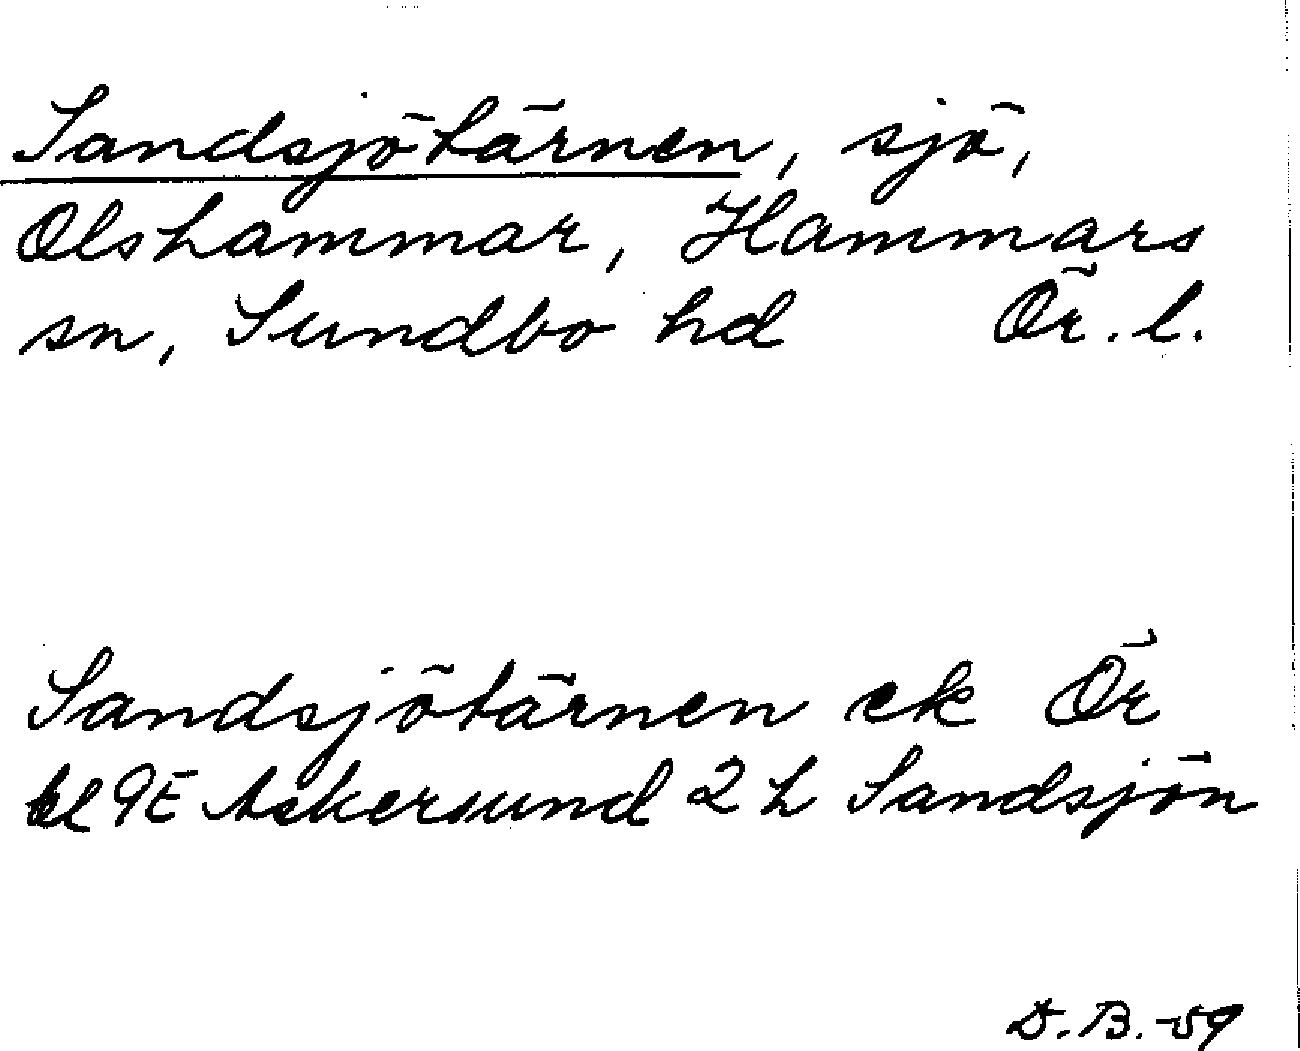 Sandsjötärnen, sjö,
Olshammar, Hammars
sn, Sundbo hd Ör. l.
Sandsjötärnen ek Ör
bl 9E Askersund 2 h Sandsjön
D. B. -59